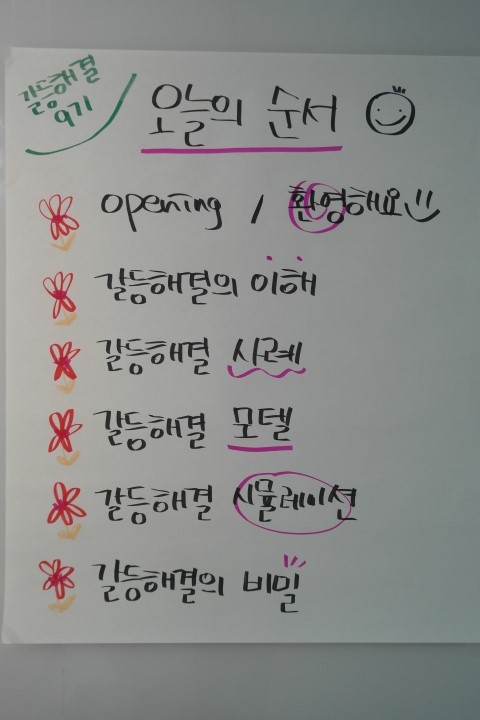 갈등해결
9기
오늘의 순서
opening / 환영해요
갈등해결의 이해
갈등해결 사례
갈등해결 모델
갈등해결 시뮬레이션
갈등해결의 비밀